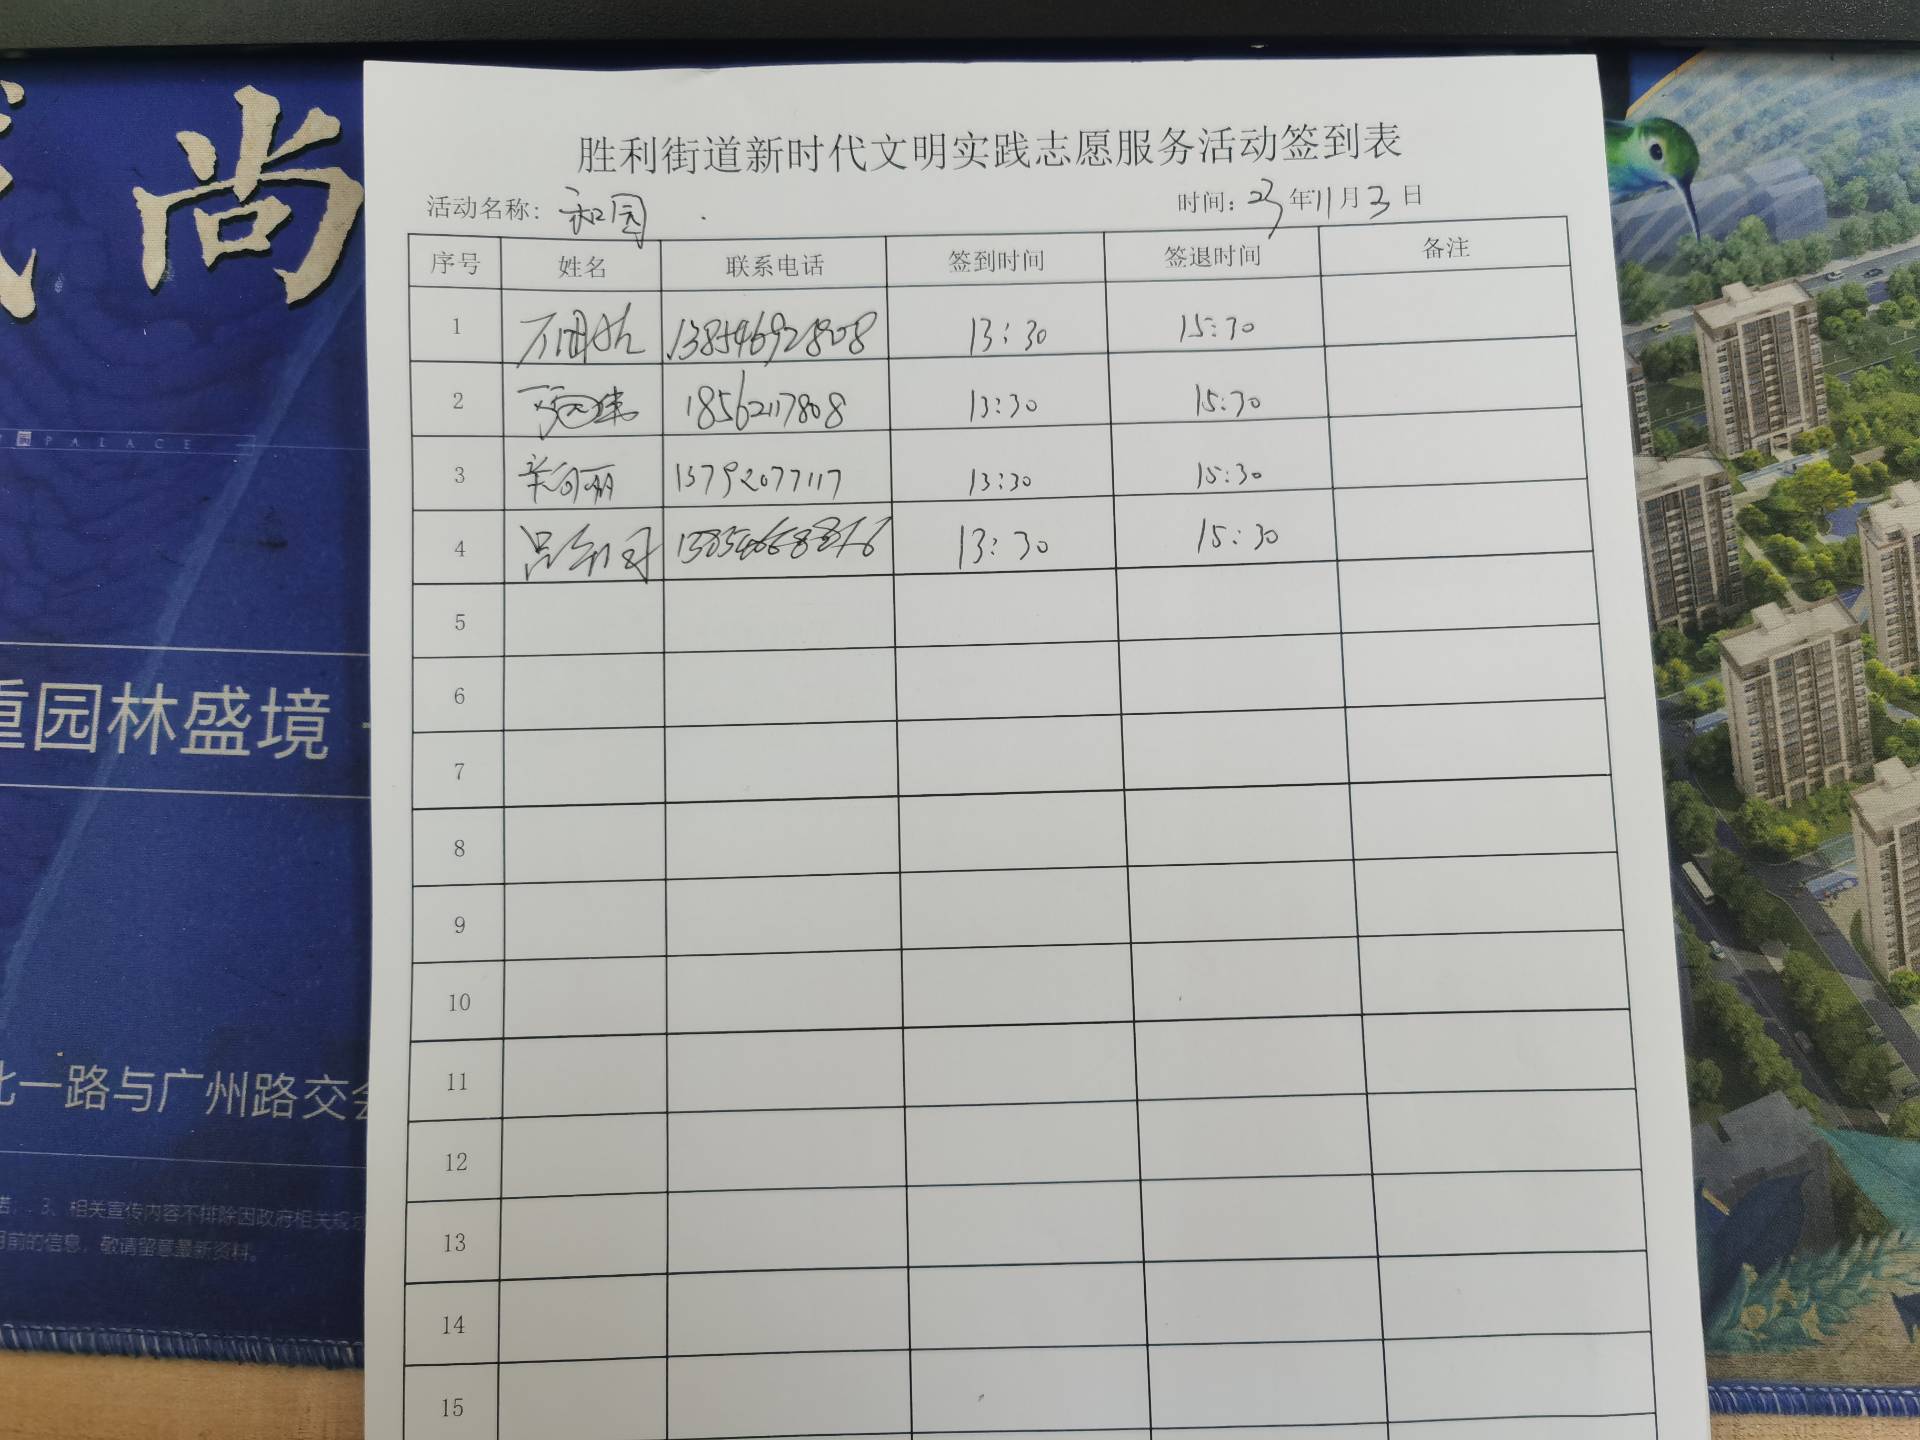 尚
PALACE
重园林盛境
北一路与广州路交会
诺；3、相关宣传内容不排除因政府相关规划
目前的信息，敬请留意最新资料。
胜利街道新时代文明实践志愿服务活动签到表
活动名称：和园 时间：23年11月3日
序号 姓名 联系电话 签到时间 签退时间 备注
1 13854692808 13:30 15:30
2 18562117808 13:30 15:30
3 辛向丽 13792077117 13:30 15:30
4 13:30 15:30
5
6
7
8
9
10
11
12
13
14
15